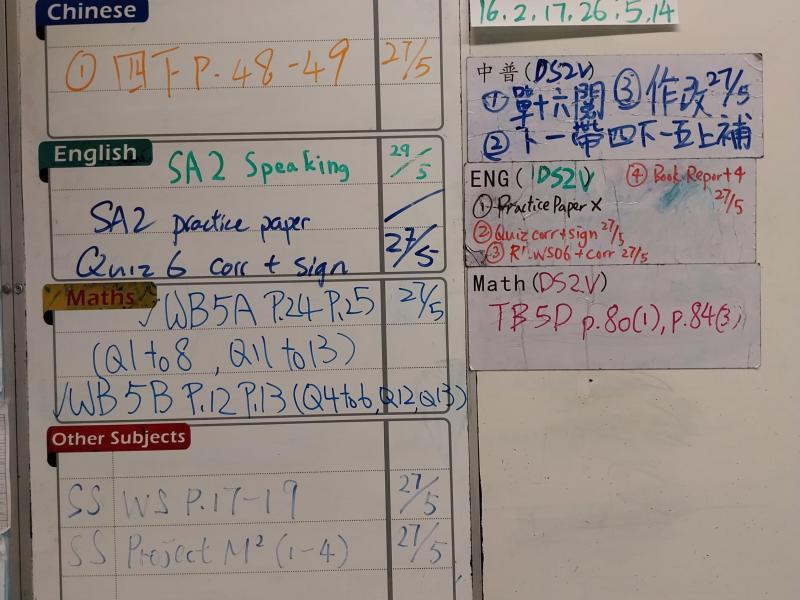 Chinese
① 四下 P. 48-49 27/5
English
SA2 Speaking 29/5
SA2 practice paper
Quiz 6 corr + sign 27/5
Maths
✓WB5A P.24 P.25 27/5
(Q1 to 8, Q11 to 13)
✓WB5B P.12 P.13 (Q4 to 6, Q12, Q13)
Other Subjects
SS WS P.17-19 27/5
SS Project M² (1-4) 27/5
16.2.17.26:5.14
中普(DS2V)
① 單十六閱 ③ 作改 27/5
② 下一帶四下一五上補
ENG (DS2V) ④ Book Report 4
① Practice Paper X 27/5
② Quiz corr + sign 27/5
③ R. WS06 + corr 27/5
Math (DS2V)
TB5D p.80(1), p.84(3)